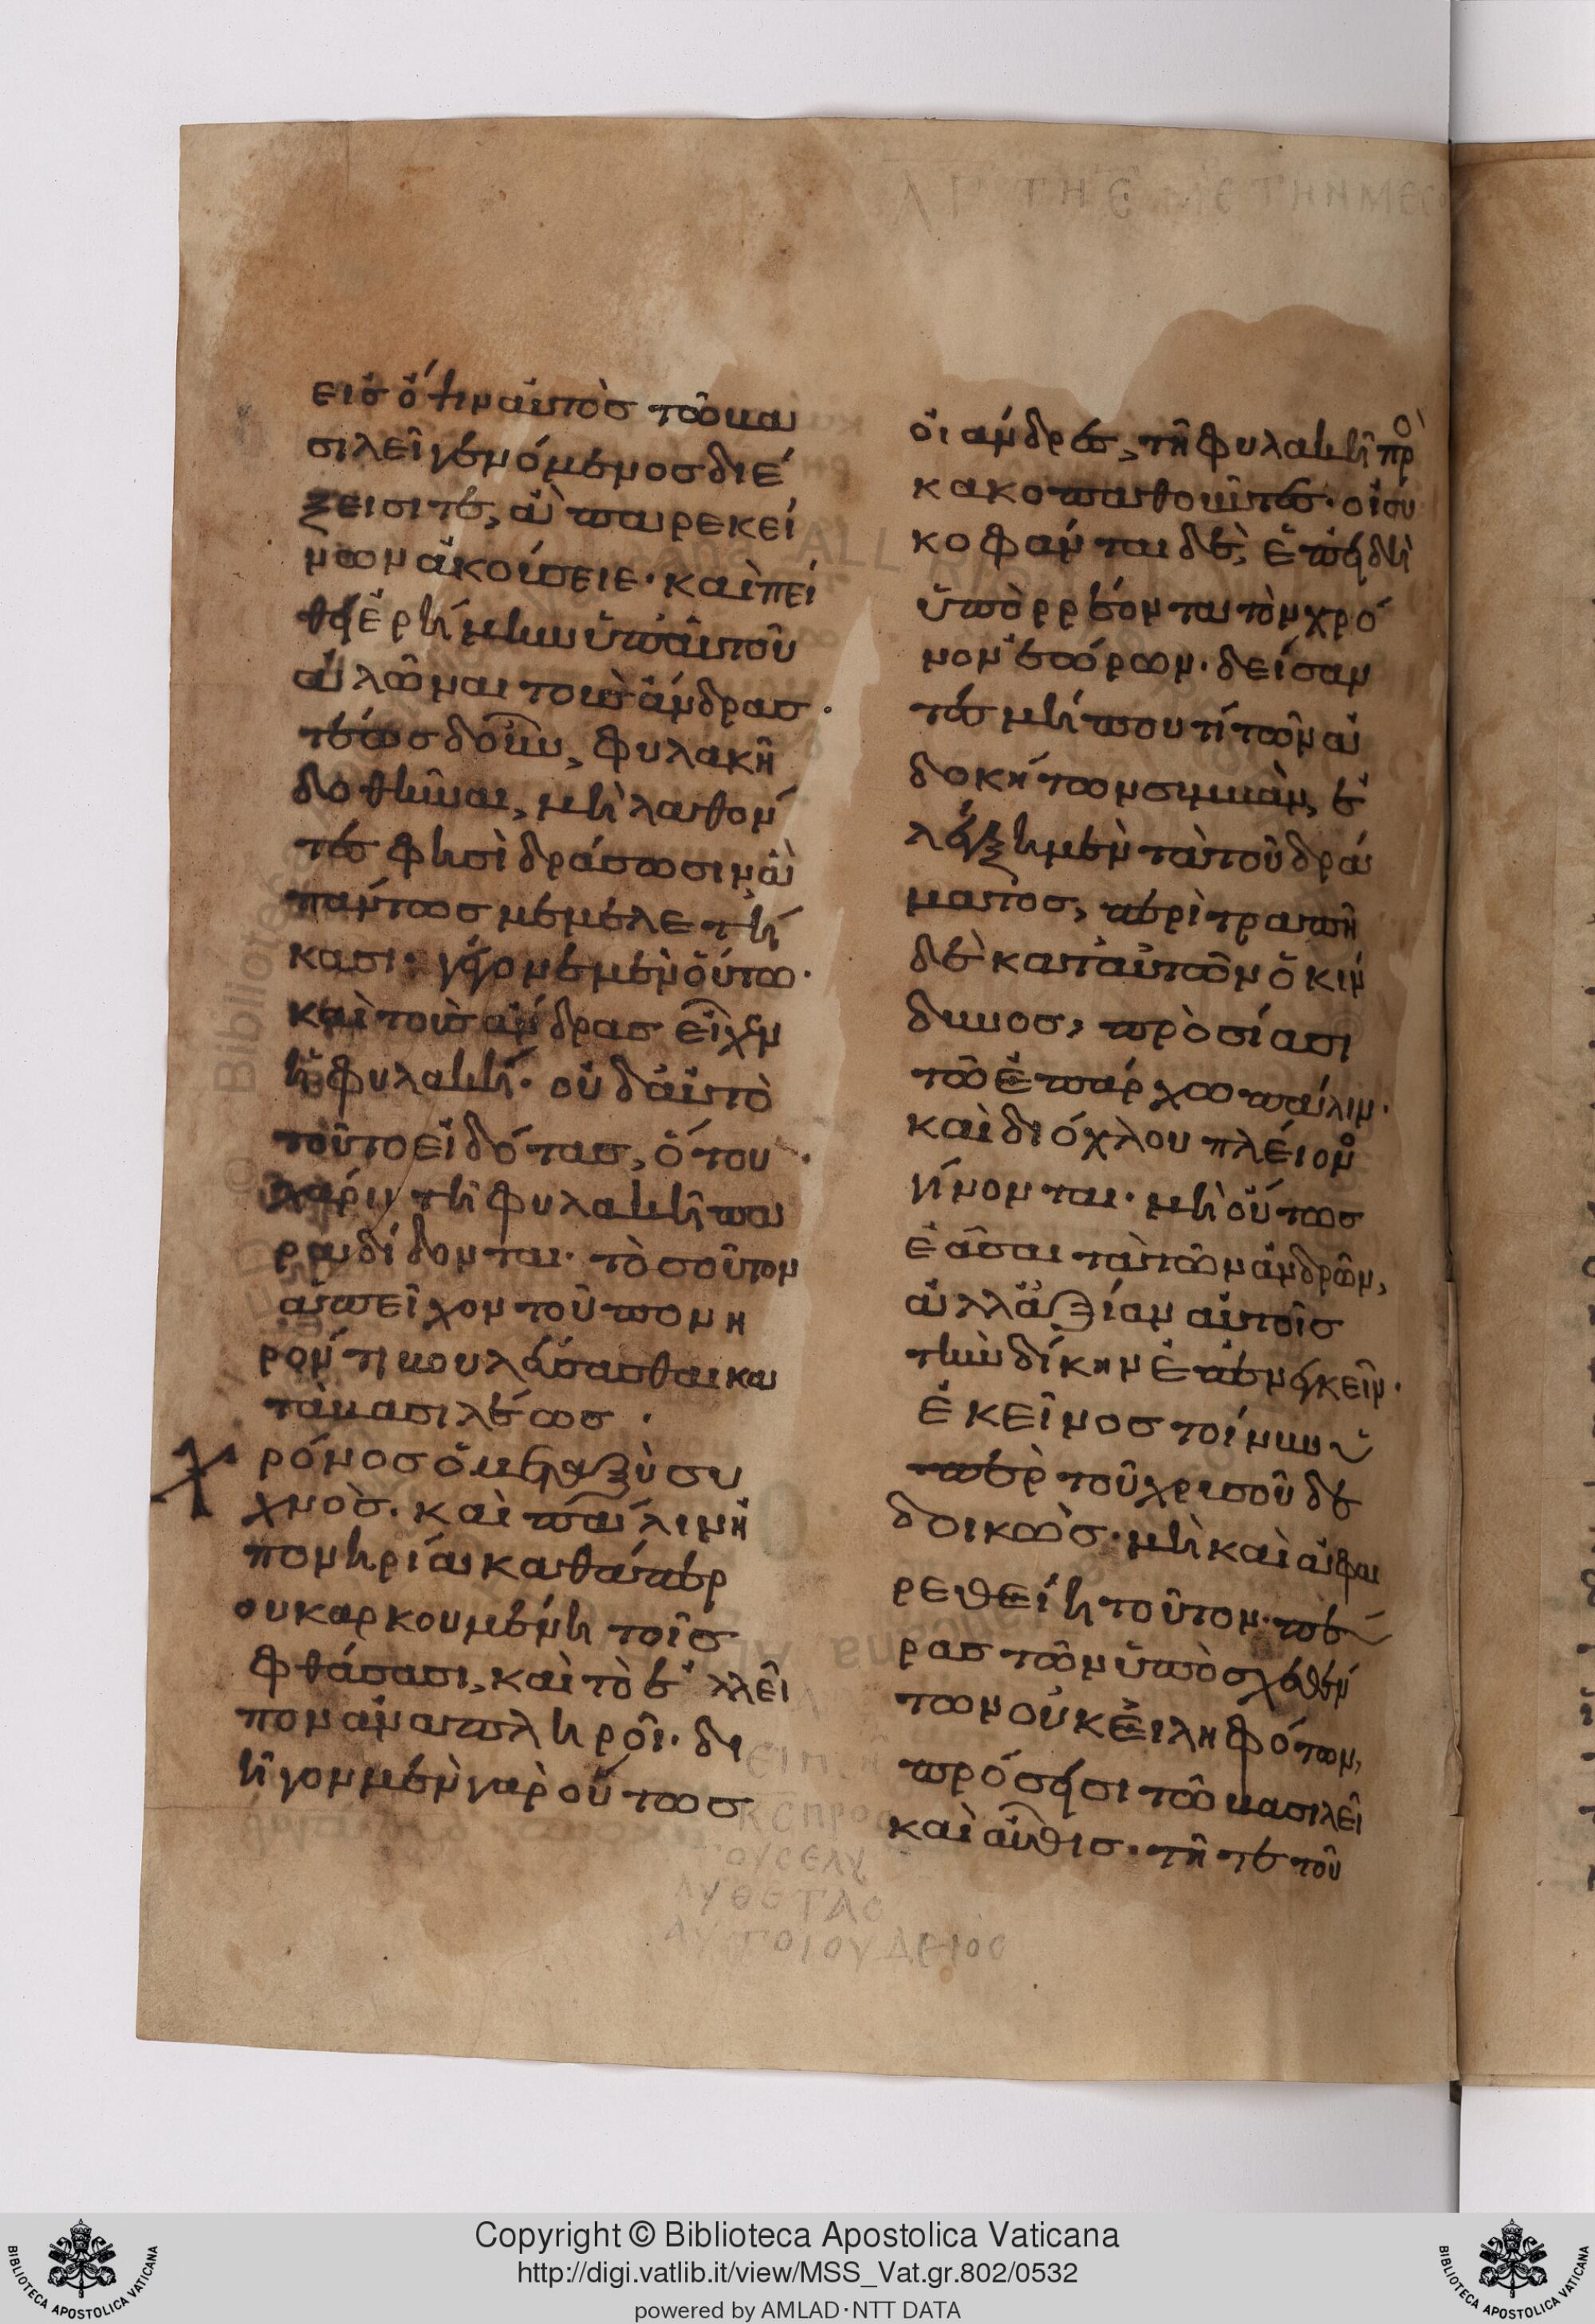 εισ ὅτιν αὐτὸσ τῶ βα
σιλεῖ γενόμενοσ διέ
ξεισί τε, ἃ παρ ἐκεί
νων ἀκούσειε· καὶ πεί
θει ἐρήμην ὑπ' αὐτοῦ
ἁλῶναι τοὺσ ἄνδρασ·
τέωσ δ' οὖν, φυλακῆ
δοθῆναι, μὴ λαθόν
τέσ φησὶ δράσωσιν ἃ
πάντωσ μεμελετή
κασι· γέγονε μὲν οὕτω·
καὶ τοὺσ ἄνδρασ εἶχεν
ἡ φυλακή· οὐδ' αὐτὸ
τοῦτο εἰδότασ, ὅτου
χάριν τῆ φυλακῆ πα
ραδίδονται· τοσοῦτον
ἀπεῖχον τοῦ πονη
ρόν τι βουλεύσασθαι κα
τὰ βασιλέωσ·
χρόνοσ ὁ μεταξὺ συ
χνὸσ· καὶ πάλιν ἡ
πονηρία καθάπερ
οὐκ ἀρκουμένη τοῖσ
φθάσασι, καὶ τὸ ἐλλεῖ
πον ἀναπληροῖ· δι
ῆγον μὲν γὰρ οὕτωσ
οἱ ἄνδρεσ, τῆ φυλακῆ πρὸ
κακοπαθοῦντεσ· οἱ συ
κοφάνται δὲ, ἐπειδὴ
ὑπορρέοντα τὸν χρό
νον ἑώρων· δείσαν
τεσ μή που τί τῶν ἀ
δοκήτων συμβὰν, ἐ
λέγξη μὲν τὰ τοῦ δρά
ματοσ, περιτραπῆ
δὲ κατ' αὐτῶν ὁ κίν
δυνοσ, προσίασι
τῶ ἐπάρχω πάλιν·
καὶ δι' ὄχλου πλέιον
γίνονται· μὴ οὕτωσ
ἐᾶσαι τὰ τῶν ἀνδρῶν,
ἀλλ' ἀξίαν αὐτοῖσ
τὴν δίκην ἐπενεγκεῖν·
ἐκεῖνοσ τοίνυν ὑ
πὲρ τοῦ χρυσοῦ δε
δοικὼσ· μὴ καὶ ἀφαι
ρεθείη τοῦτον· πέ
ρασ τῶν ὑποσχεθέν
των οὐκ εἰληφότων,
πρόσεισι τῶ βασιλεῖ
καὶ αὖθισ· τῆ τε τοῦ
Copyright © Biblioteca Apostolica Vaticana
http://digi.vatlib.it/view/MSS_Vat.gr.802/0532
powered by AMLAD·NTT DATA
BIBLIOTECA APOSTOLICA VATICANA
BIBLIOTECA APOSTOLICA VATICANA